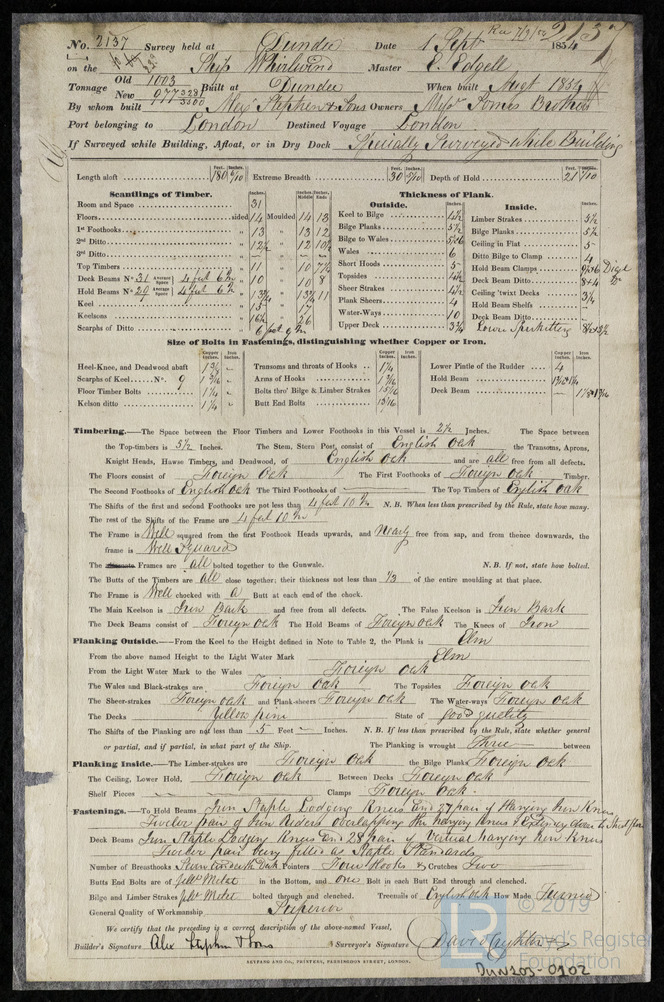 Rec 7/9/54 2137
No. 2137 Survey held at Dundee Date 1 Sept 1854
on the Ship Whirlwind Master E. Edgell
Tonnage Old 1003 New 977 328/3500 Built at Dundee When built Augt 1854
By whom built Alexr Stephen & Sons Owners Messrs Somes Brothers
Port belonging to London Destined Voyage London
If Surveyed while Building, Afloat, or in Dry Dock Specially Surveyed while Building
Length aloft 180 6/10 Extreme Breadth 30 6/10 Depth of Hold 21 1/10
Scantlings of Timber.
Room and Space 31
Floors sided 14 Moulded 14 13
1st Foothooks " 13 " 13 12
2nd Ditto " 12½ " 12 10½
3rd Ditto " — " — —
Top Timbers " 11 " 10 7½
Deck Beams No. 31 Average Space 4 feet 6 in " 10 " 10 8
Hold Beams No. 29 Average Space 4 feet 6 in " 13¾ " 13¾ 11
Keel " 15 " 17
Keelsons " 16½ " 26
Scarphs of Ditto 6 feet 9 in
Thickness of Plank.
Outside.
Keel to Bilge 4½
Bilge Planks 5½
Bilge to Wales 5½ 6
Wales 6
Short Hoods 5
Topsides 4½
Sheer Strakes 4½
Plank Sheers 4
Water-Ways 10
Upper Deck 3¾
Inside.
Limber Strakes 5½
Bilge Planks 5½
Ceiling in Flat 5
Ditto Bilge to Clamp 4
Hold Beam Clamps
Deck Beam Ditto 8 & 4
Ceiling 'twixt Decks 3½
Hold Beam Shelfs —
Deck Beam Ditto —
Lower Spirketting
Size of Bolts in Fastenings, distinguishing whether Copper or Iron.
Heel-Knee, and Deadwood abaft
Scarphs of Keel No. 9
Floor Timber Bolts 1¼
Kelson ditto 1¼
Transoms and throats of Hooks 1¼
Arms of Hooks 1 1/16
Bolts thro' Bilge & Limber Strakes 15/16
Butt End Bolts 13/16
Lower Pintle of the Rudder 4
Hold Beam
Deck Beam
Timbering.—The Space between the Floor Timbers and Lower Foothooks in this Vessel is 2½ Inches. The Space between
the Top-timbers is 5½ Inches. The Stem, Stern Post, consist of English Oak the Transoms, Aprons,
Knight Heads, Hawse Timbers, and Deadwood, of English oak and are all free from all defects.
The Floors consist of Foreign Oak The First Foothooks of Foreign Oak Timber.
The Second Foothooks of English Oak The Third Foothooks of — The Top Timbers of English Oak
The Shifts of the first and second Foothooks are not less than 4 feet 10 in N. B. When less than prescribed by the Rule, state how many.
The rest of the Shifts of the Frame are 4 feet 10 in
The Frame is Well squared from the first Foothook Heads upwards, and Nearly free from sap, and from thence downwards, the
frame is Well Squared
The Frames are all bolted together to the Gunwale. N. B. If not, state how bolted.
The Butts of the Timbers are all close together; their thickness not less than 1/3 of the entire moulding at that place.
The Frame is Well chocked with a Butt at each end of the chock.
The Main Keelson is Iron Bark and free from all defects. The False Keelson is Iron Bark
The Deck Beams consist of Foreign oak The Hold Beams of Foreign oak The Knees of Iron
Planking Outside.—From the Keel to the Height defined in Note to Table 2, the Plank is Elm
From the above named Height to the Light Water Mark Elm
From the Light Water Mark to the Wales Foreign oak
The Wales and Black-strakes are Foreign Oak The Topsides Foreign oak
The Sheer-strakes Foreign oak and Plank-sheers Foreign oak The Water-ways Foreign oak
The Decks Yellow pine State of good quality
The Shifts of the Planking are not less than 5 Feet — Inches. N. B. If less than prescribed by the Rule, state whether general
or partial, and if partial, in what part of the Ship. The Planking is wrought Three between
Planking Inside.—The Limber-strakes are Foreign Oak the Bilge Planks Foreign Oak
The Ceiling, Lower Hold, Foreign oak Between Decks Foreign oak
Shelf Pieces — Clamps Foreign Oak
Fastenings.—To Hold Beams Iron Staple Lodging Knees and 27 pair of Hanging Iron Knees
Twelve pair of Iron Riders overlapping the hanging Knees &
Deck Beams Iron Staple Lodging Knees and 28 pair of Vertical hanging Iron Knees
Twelve pair being fitted as Staple Standards
Number of Breasthooks Pointers Four Hooks & Crutches Five
Butts End Bolts are of Yellow Metal in the Bottom, and one Bolt in each Butt End through and clenched.
Bilge and Limber Strakes Yellow Metal bolted through and clenched. Treenails of English Oak How Made Turned
General Quality of Workmanship Superior
We certify that the preceding is a correct description of the above-named Vessel,
Builder's Signature Alex Stephen & Sons Surveyor's Signature David Crighton
SEYFANG AND CO., PRINTERS, FARRINGDON STREET, LONDON.
LR © 2019
Lloyd's Register
Foundation
DUN203-0202